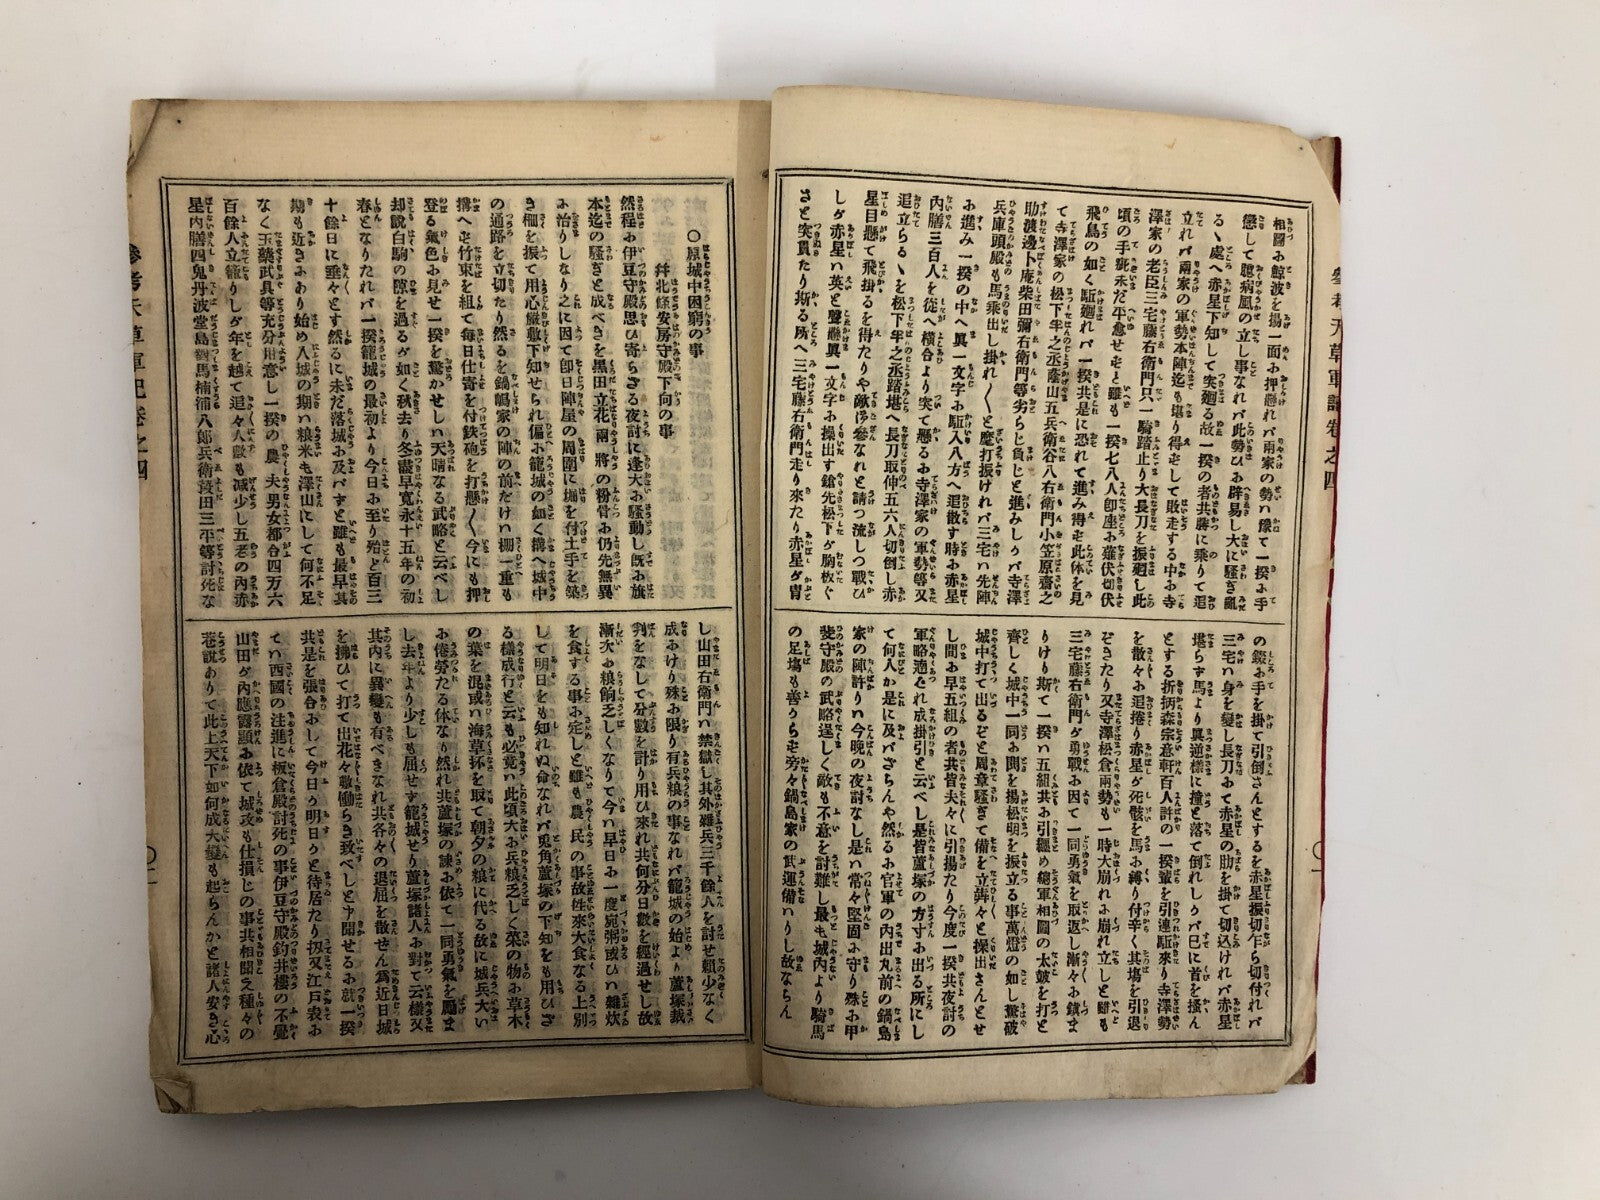 相圖お鯨波を揚一面お押懸れバ兩家の勢ハ豫て一揆ふ手
懲して臆病風の立し事なれバ此勢ひお辟易し大に騒ぎ亂
るゝ處へ赤星下知して突廻る故一揆の者共勝に乘りて追
立れバ兩家の軍勢本陣迄も堪り得ずして敗走する中お寺
澤家の老臣三宅藤右衛門只一騎踏止り大長刀を振廻し此
頃の手疵未だ平愈せずと雖も一揆七八人即座お薙伏切伏
飛鳥の如く駈廻れバ一揆共是に恐れて進み得ず此体を見
て寺澤家の松下半之丞蔭山五兵衛谷八右衛門小笠原齋之
助渡邊卜庵柴田彌右衛門等劣らじ負じと進みしゟバ寺澤
兵庫頭殿も馬乘出し掛れ〳〵と麾打振けれバ三宅ハ先陣
お進み一揆の中へ眞一文字お駈入八方へ追散す時お赤星
内膳三百人を從へ横合より突て懸るお寺澤家の軍勢等又
追立らるゝを松下半之丞踏堪へ長刀取伸五六人切倒し赤
星目懸て飛掛るを得たりや敵參なれと請つ流しつ戰ひ
しゲ赤星ハ英と聲聯眞一文字お操出す鎗先松下ゲ胸板ぐ
さと突貫たり斯る所へ三宅藤右衛門走り來たり赤星ゲ冑
の錣お手を掛て引倒さんとするを赤星振切乍ら切付れバ
三宅ハ身を變し長刀おて赤星の肋を掛て切込けれバ赤星
堪らず馬より眞逆樣に撞と落て倒れしゟバ已に首を掻ん
とする折柄森宗意軒百人許の一揆輩を引連駈來り寺澤勢
を散々お追捲り赤星ゲ死骸を馬お縛り付辛く其塲を引退
ぞきたり又寺澤松倉兩勢も一時大崩れふ崩れ立しと雖も
三宅藤右衛門ゲ勇戰お因て一同勇氣を取返し漸々お鎮ま
りけり斯て一揆ハ五組共お引纒め總軍相圖の太皷を打と
齊しく城中一同お鬨を揚松明を振立る事萬燈の如し驚破
城中打て出るぞと周章騒ぎて備を立粛々と操出さんとせ
し間お早五組の者共皆夫々に引揚たり今度一揆共夜討の
軍略適れ成掛引と云べし是皆蘆塚の方寸お出る所にし
て何人か是に及バざらんや然るお官軍の内出丸前の鍋島
家の陣許りハ今晩の夜討なし是ハ常々堅固お守り殊お甲
斐守殿の武略逞しく敵も不意を討難し最も城内より騎馬
の足塲も善ゟらず旁々鍋島家の武運備ハりし故ならん
○原城中困窮の事
幷北條安房守殿下向の事
然程お伊豆守殿思ひ寄らざる夜討に逢大お騒動し既お旗
本迄の騒ぎと成べきを黒田立花兩將の粉骨お仍先無異
お治りしなり之に因て即日陣屋の周圍に堀を付土手を築
き柵を振て用心嚴敷下知せられ偏お籠城の如く構へ城中
の通路を立切たり然るを鍋嶋家の陣の前だけハ柵一重も
搆へず竹束を組て毎日仕寄を付鉄砲を打懸〳〵今にも押
登る氣色お見せ一揆を驚かせしハ天晴なる武略と云べし
却説白駒の隙を過るゲ如く秋去り冬盡早寛永十五年の初
春となりたれバ一揆籠城の最初より今日お至り殆と百三
十餘日に垂々とす然るに未だ落城お及バずと雖も最早其
期も近きおあり始め入城の期ハ粮米も澤山にして何不足
なく玉藥武具等充分用意し一揆の農夫男女都合四万六
百餘人立籠りしゲ年を越て追々人數も減少し五老の内赤
星内膳四鬼丹波堂島對馬楠浦八郎兵衛蓑田三平等討死な
し山田右衛門ハ禁獄し其外雑兵三千餘人を討せ頼少なく
成ふけり殊お限り有兵粮の事なれバ籠城の始より蘆塚裁
判をなして分數を計り用ひ來れ共何分日數を經過せし故
漸次お粮餉乏しくなりて今ハ早日お一度宛粥或ひハ雑炊
を食する事お定しと雖も農民の事故性來大食なる上別
して明日をも知れぬ命なれバ兎角蘆塚の下知をも用ひざ
る樣成行と云も必竟ハ此頃大お兵粮乏しく菜の物お草木
の葉を混或ハ海草抔を取て朝夕の粮に代る故に城兵大い
お倦勞たる体なり然れ共蘆塚の諫お依て一同勇氣を勵ま
し去年より少しも屈せず籠城せり蘆塚諸人お對て云樣又
其内に異變も有べきなれ共各々の退屈を散せん爲近日城
を拂ひて打て出花々敷働らき致べしと申聞せるお就一揆
共是を張合おして今日ゟ明日ゟと待居たり扨又江戸表お
てハ西國の注進に板倉殿討死の事伊豆守殿釣井樓の不覺
山田ゲ内應露顯お依て城攻も仕損じの事共相聞え種々の
巷説ありて此上天下如何成大變も起らんかと諸人安き心
參考天草軍記卷之四